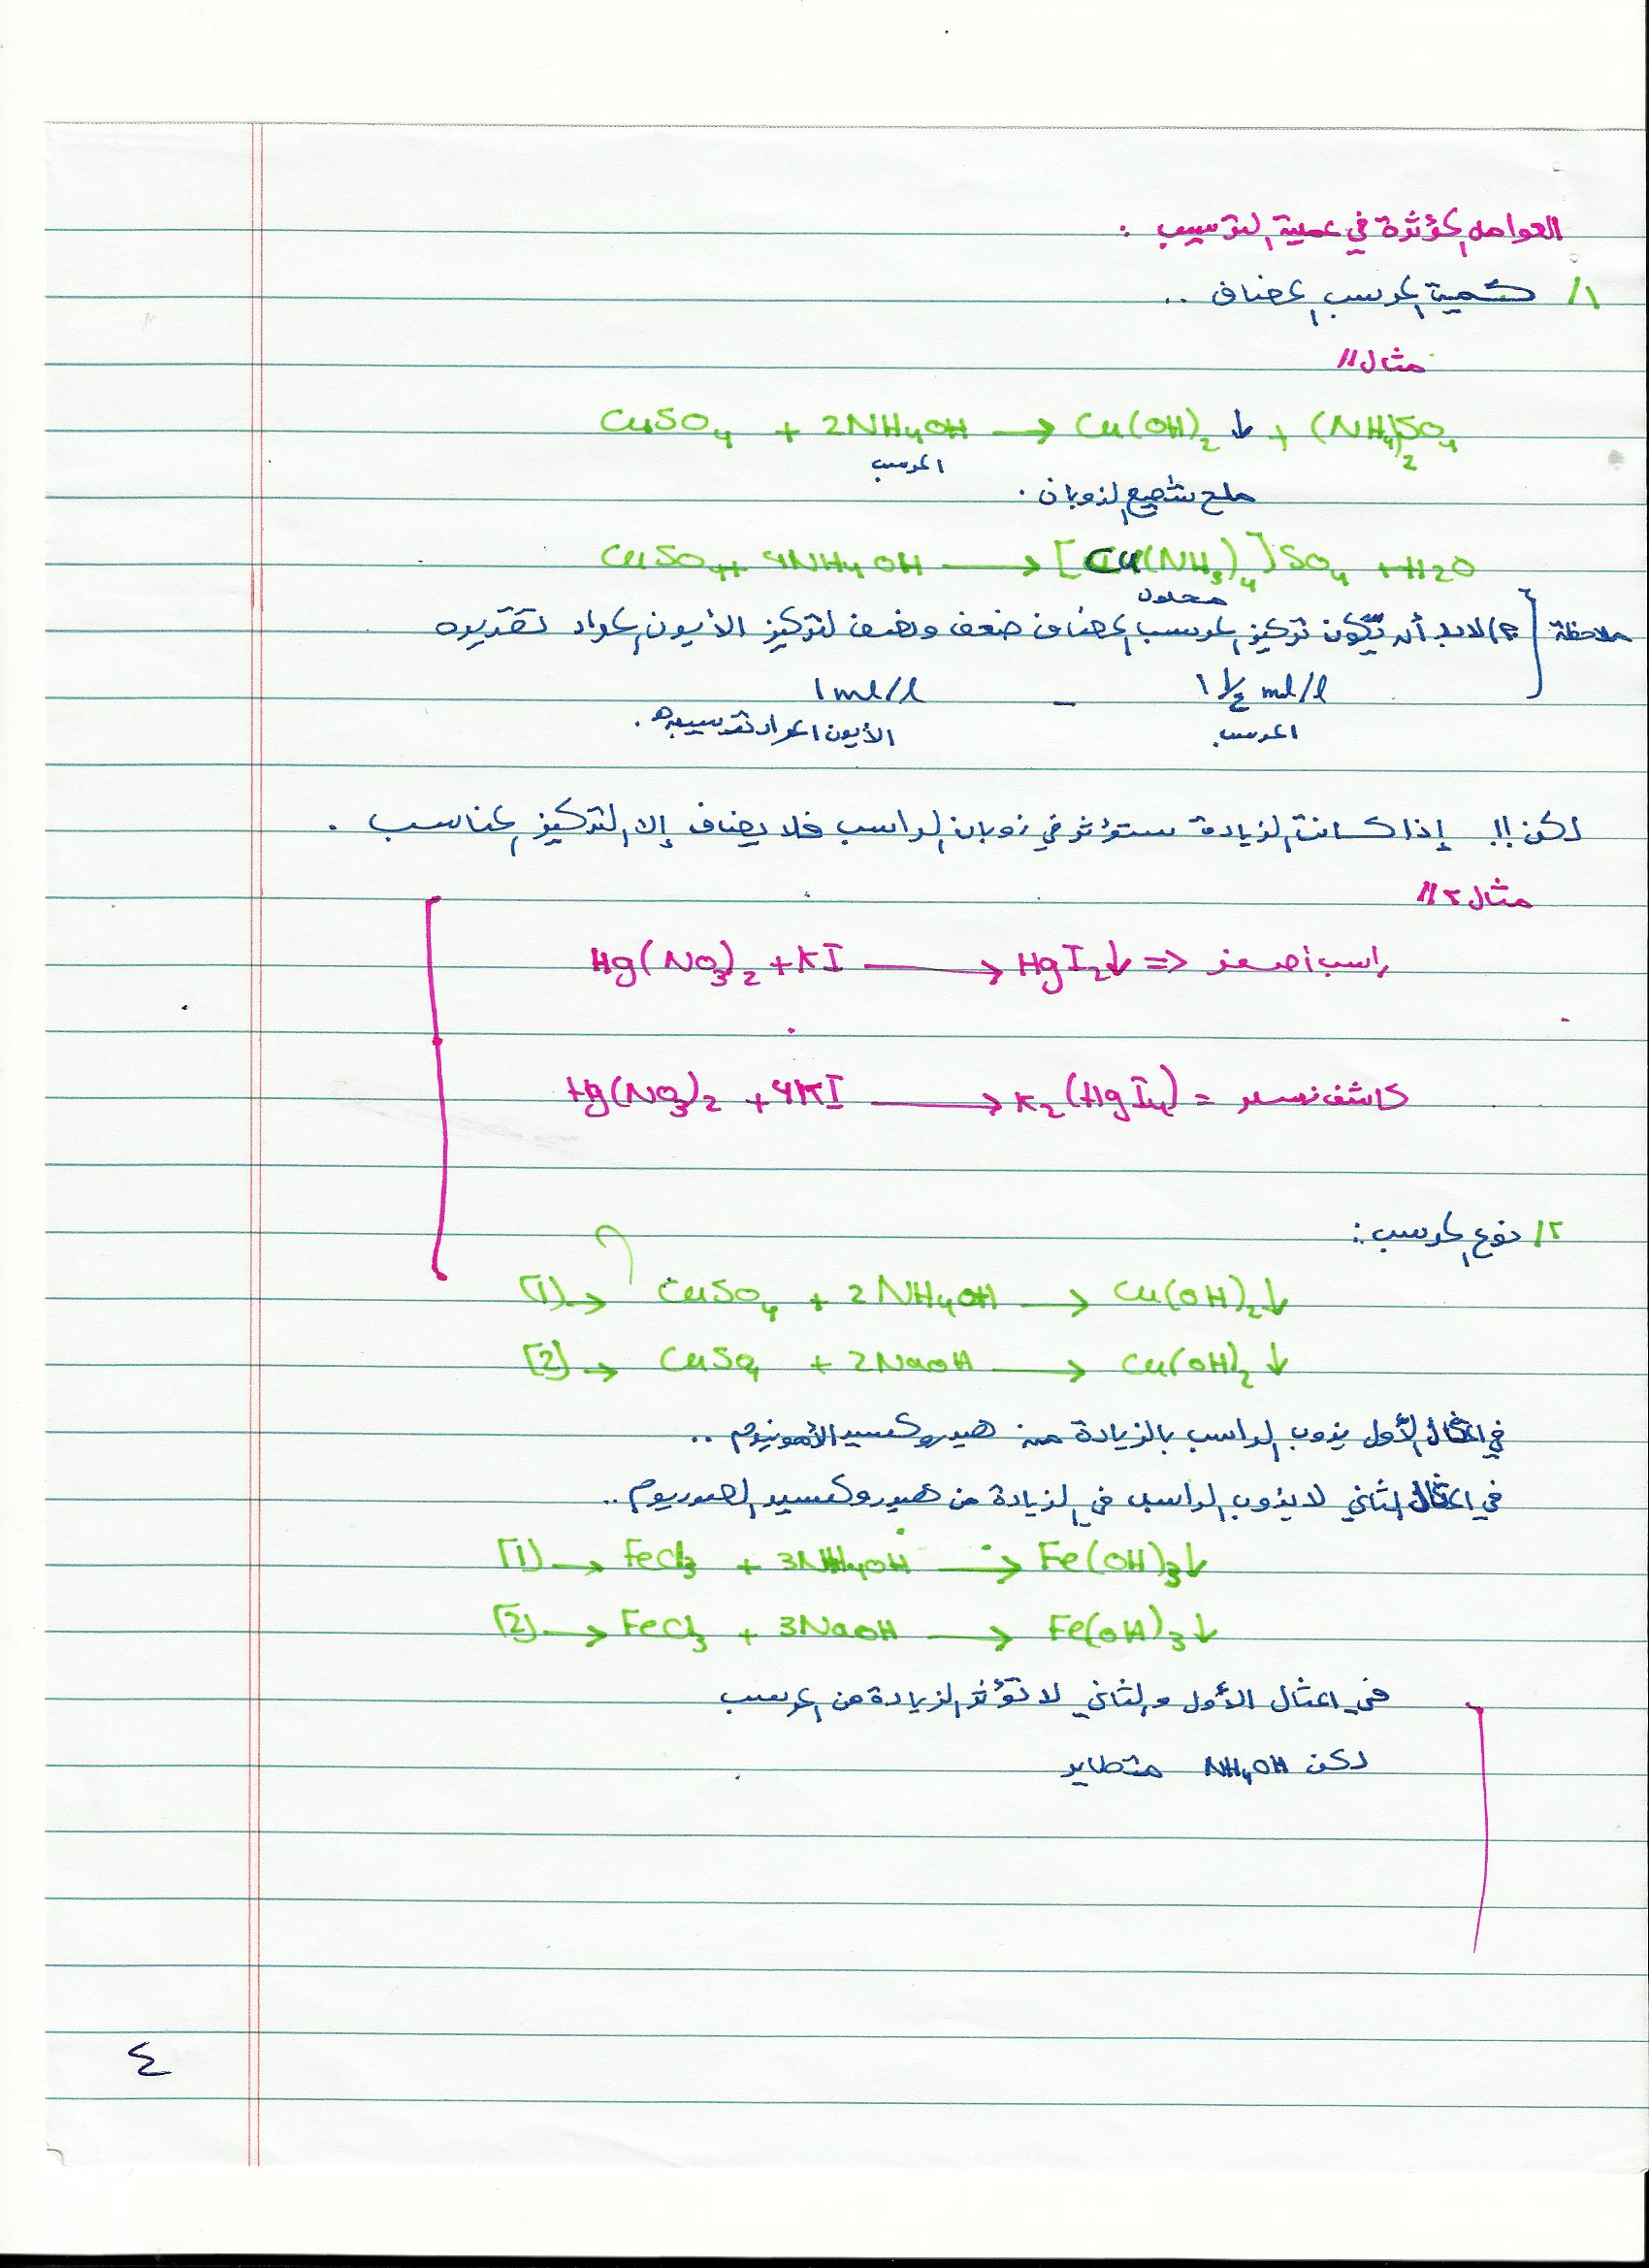 العوامل المؤثرة في عملية الترسيب :
١/ كمية المرسب المضاف ..
مثال //
CuSO4 + 2NH4OH → Cu(OH)2 ↓ + (NH4)2SO4
المرسب
ملح شحيح الذوبان .
CuSO4 + 4NH4OH → [Cu(NH3)4]SO4 + H2O
محلول
ملاحظة لابد أن يكون تركيز المرسب المضاف ضعف ونصف لتركيز الأيون المراد تقديره
1 1/2 ml/l – 1 ml/l
المرسب الأيون المراد ترسيبه .
لكن !! إذا كانت الزيادة ستؤثر في ذوبان الراسب فلا يضاف إلا التركيز المناسب .
مثال ٢ //
Hg(NO3)2 + KI → HgI2↓ => راسب أصفر
Hg(NO3)2 + 4KI → K2(HgI4) = كاشف نسلر
٢/ نوع المرسب :
[1] → CuSO4 + 2NH4OH → Cu(OH)2↓
[2] → CuSO4 + 2NaOH → Cu(OH)2↓
في المثال الأول يذوب الراسب بالزيادة من هيدروكسيد الأمونيوم ..
في المثال الثاني لا يذوب الراسب في الزيادة من هيدروكسيد الصوديوم ..
[1] → FeCl3 + 3NH4OH → Fe(OH)3↓
[2] → FeCl3 + 3NaOH → Fe(OH)3↓
في المثال الأول والثاني لا تؤثر الزيادة من المرسب
لكن NH4OH متطاير
٤